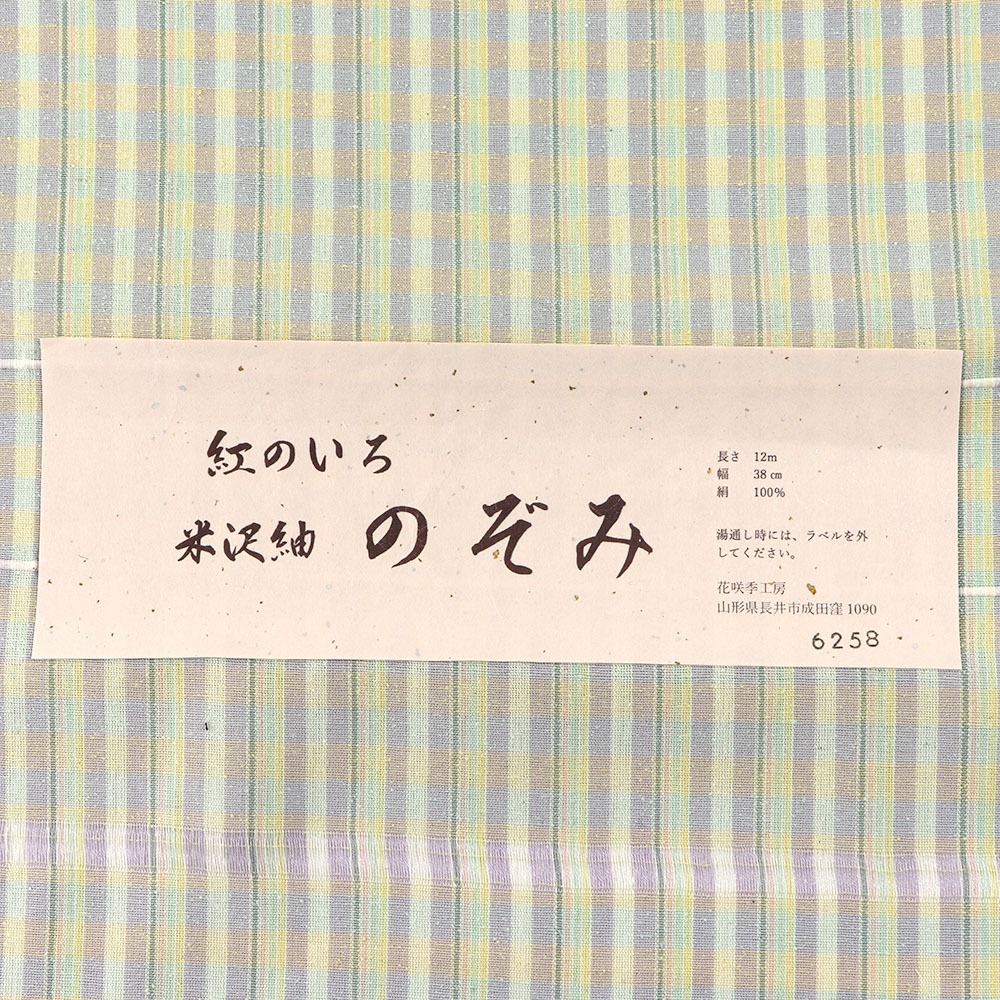 紅のいろ
米沢紬 のぞみ
長さ 12m
幅 38㎝
絹 100%
湯通し時には、ラベルを外
してください。
花咲季工房
山形県長井市成田窪1090
6258